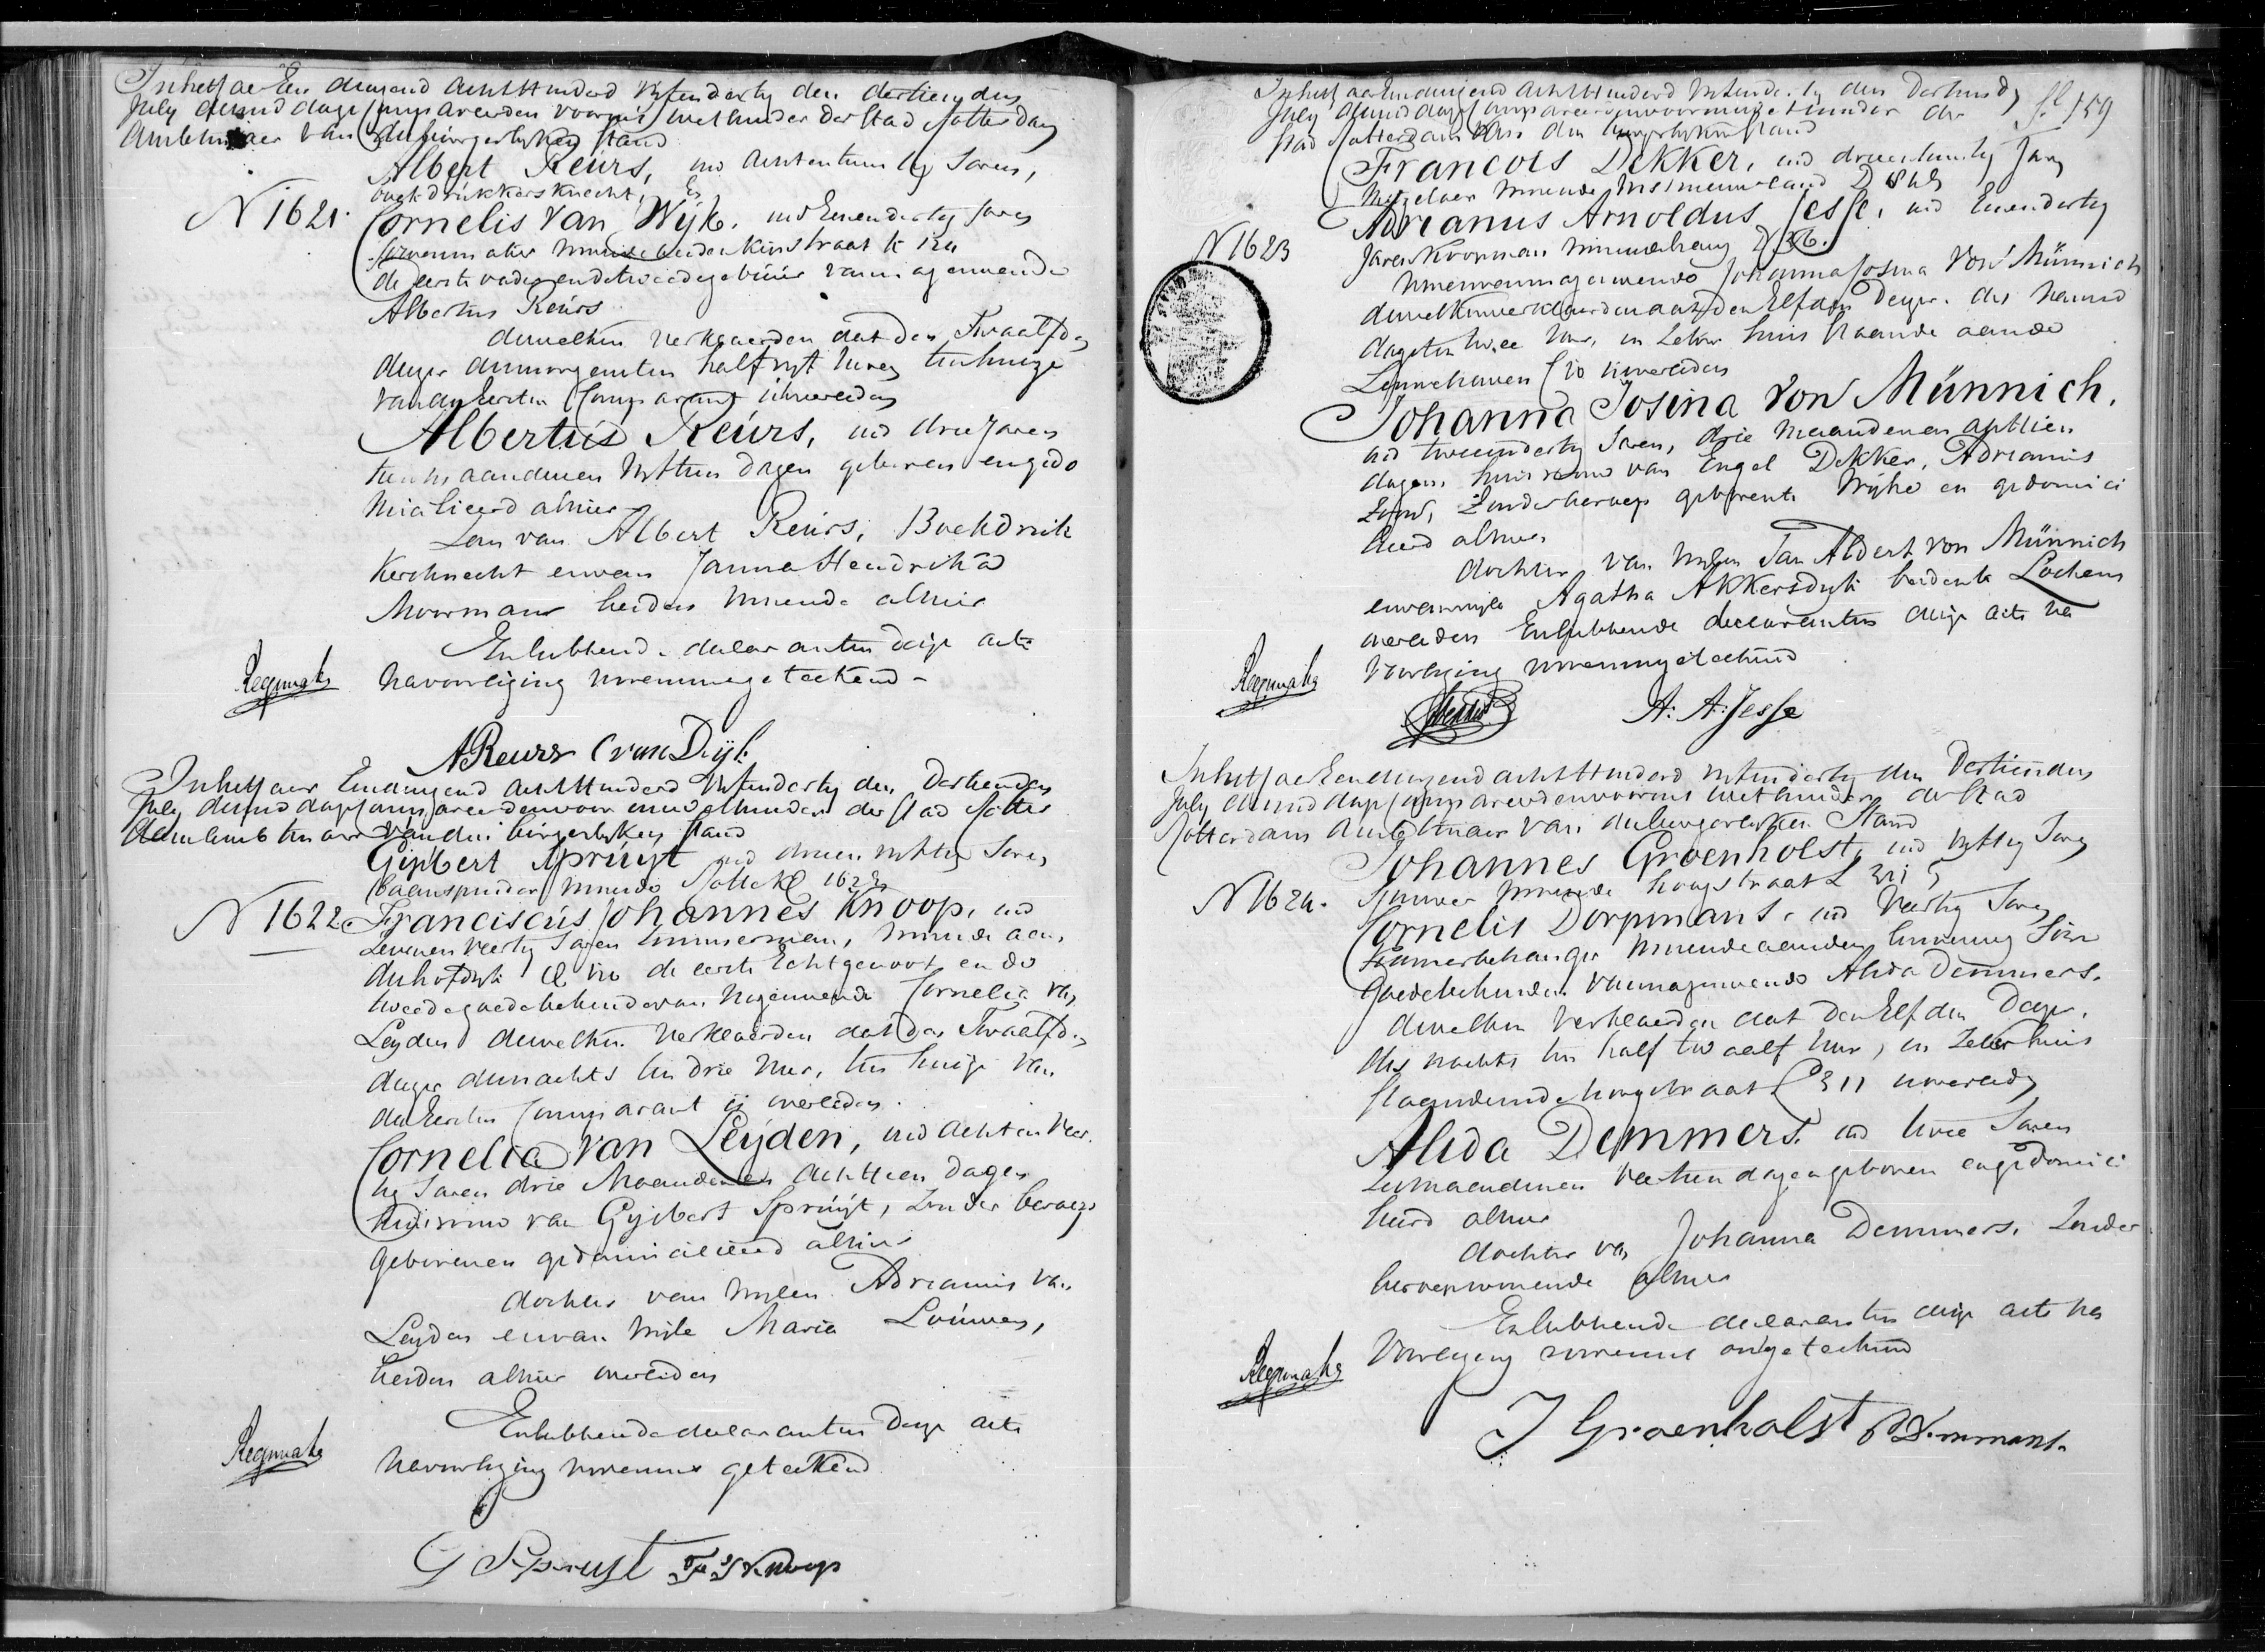 In het Jaar Een duizend achtHonderd vijfendertig den dertienden
July dezes dags Compareerden voor mij Wethouder der Stad Rotterdam
Ambtenaar van den burgerlyken Stand
Albert Keurs, oud achtentwintig Jaren,
boekdrukkersknecht, En
N 1621.
Cornelis van Wijk, oud Eenendertig Jaren
wonende in de
de eerste vader en de tweede gebuur van nagenoemde
Albertus Keurs
dewelken verklaarden dat den Twaalfden
dezer des morgens ten half vyf uren ten huize
van den Eersten Comparant is overleden
Albertus Keurs, oud drie Jaren
tien maanden en vyftien dagen geboren en gedo
micilieerd alhier
Zoon van Albert Keurs, Boekdruk
kersknecht en van Janna Hendrika
Moormans beiden wonende alhier
En hebben de declaranten deze acte
na voorlezing nevens ons geteekend -
A Keurs C van Dijk
In het Jaar Eenduizend achtHonderd vijfendertig den Dertienden
July dezes dags Compareerden voor mij Wethouder der Stad Rotter
dam ambtenaar van den burgerlyken Stand
Gijsbert Spruyt oud drieenvyftig Jaren
baanspinder wonende 1622
N 1622
Franciscus Johannes Knoop, oud
zevenenveertig Jaren timmerman, wonende aan
de hofdyk de eerste Echtgenoot en de
tweede goede bekende van nagenoemde Cornelia van
Leyden dewelken verklaarden dat den Twaalfden
dezer des nachts ten drie uur, ten huize van
den Eersten Comparant is overleden
Cornelia van Leyden, oud achtenveer
tig Jaren drie Maanden en achttien dagen
huisvrouw van Gysbert Spruyt, zonder beroep
geboren en gedomicilieerd alhier
dochter van wylen Adrianus van
Leyden en van wyle Maria Louwen,
beiden alhier overleden
En hebben de declaranten deze acte
na voorlezing nevens ons geteekend
G Spruyt F J Knoop
fl 159
In het Jaar Eenduizend achtHonderd vyfendertig den Dertienden
July dezes dags Compareerden voor mij Wethouder der
Stad Rotterdam van den burgerlyken Stand
Francois Dekker, oud drieentwintig Jaren
Metzelaar wonende
Adrianus Arnoldus Jesse, oud Eenendertig
N 1623
Jaren Koopman wonende D 36.
van nagenoemde Johanna Josina Von Münnich
dewelken verklaarden dat den Elfden Dezer des namid
dags ten twee uur, in zeker huis staande aan de
Leuvehaven is overleden
Johanna Josina Von Münnich,
oud tweeendertig Jaren, drie maanden en achttien
dagen, huisvrouw van Engel Dekker, Adrianus
Zoon, Zonder beroep geboren te en gedomici
lieerd alhier
dochter van wylen Jan Aldert von Münnich
en van wyle Agatha Akkersdyk beiden te Lochem
overleden En hebben de declaranten deze acte na
voorlezing nevens ons geteekend
A: A: Jesse
In het Jaar Eenduizend achtHonderd vyfendertig den Dertienden
July dezes dags Compareerden voor mij Wethouder der Stad
Rotterdam Ambtenaar van den burgerlyken Stand
Johannes Groenholst, oud vyftig Jaren
N 1624.
wonende hoogstraat L 311
Cornelis Dorpmans, oud Veertig Jaren
Kamerbehanger wonende aan den
Goede bekenden van nagenoemde Alida Demmers.
dewelken verklaarden dat den Elfden Dezer,
des nachts ten half twaalf uur, in Zeker huis
staande in de hoogstraat L 311 is overleden
Alida Demmers oud twee Jaren
zes maanden en veertien dagen geboren en gedomici
lieerd alhier
dochter van Johanna Demmers, Zonder
beroep wonende alhier
En hebben de declaranten deze acte na
Voorlezing nevens ons geteekend
J Groenholst